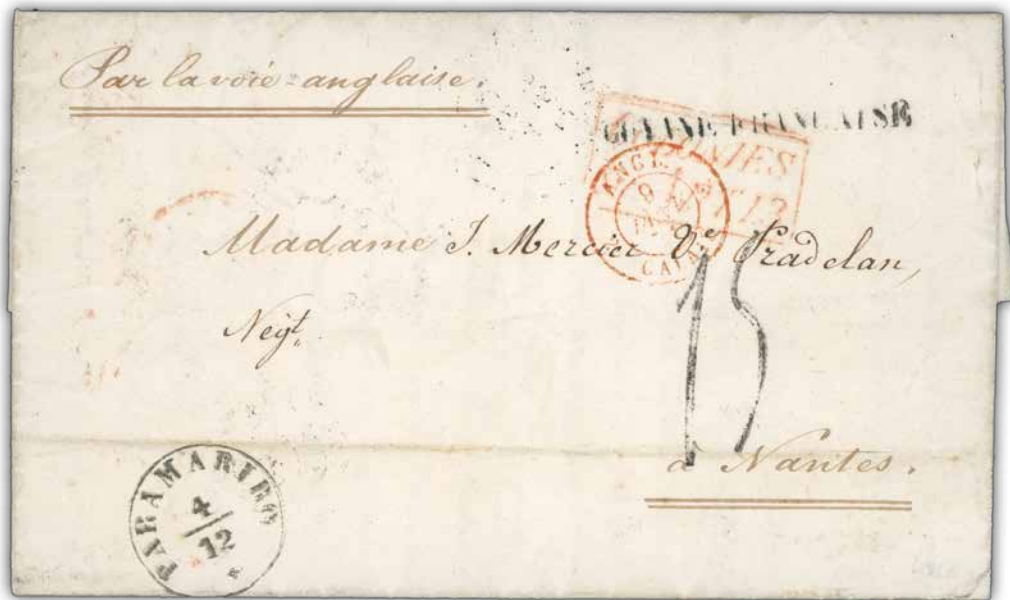 Par la voie anglaise.
GUYANE FRANCAISE
COLONIES
ANGL.
9
CALA
Madame J. Mercier Ve Pradelan,
Negt.
15
à Nantes.
PARAMARIBO
4
12